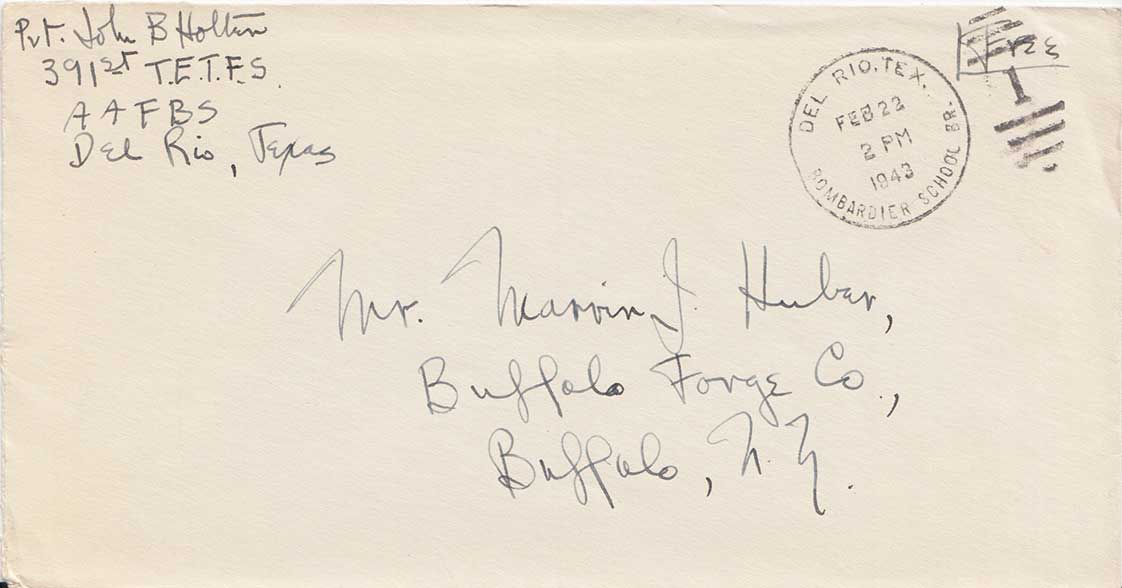 Pvt. John B Holten
391st T.E.T.F.S.
AAFBS
Del Rio, Texas
Free
DEL RIO, TEX.
FEB 22
2 PM
1943
BOMBARDIER SCHOOL BR.
1
Mr. Marvin J. Huber,
Buffalo Forge Co.,
Buffalo, N.Y.